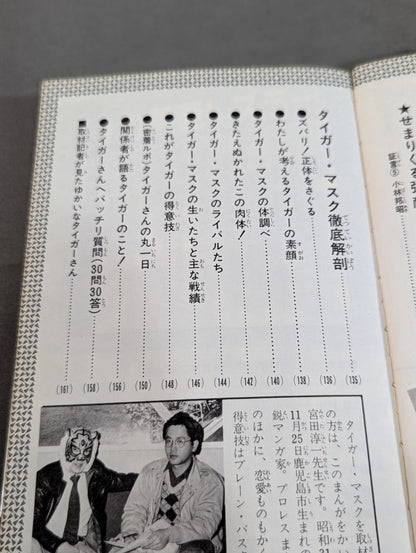 ★せまりくる
証言⑤ 小林邦昭
タイガー・マスク徹底解剖 (135)
●ズバリ!正体をさぐる (136)
●わたしが考えるタイガーの素顔 (138)
●タイガー・マスクの体調べ (140)
●きたえぬかれたこの肉体! (142)
●タイガー・マスクのライバルたち (144)
●タイガー・マスクの生いたちと主な戦績 (146)
●これがタイガーの得意技 (148)
●(密着ルポ)タイガーさんの丸一日 (150)
●関係者が語るタイガーのこと! (156)
●タイガーさんへバッチリ質問(30問30答) (158)
■取材記者が見たゆかいなタイガーさん (161)
タイガー・マスクを取材
の方は、このまんがをか
宮田淳一先生です。昭和
11月25日鹿児島市生まれの
鋭マンガ家。プロレスま
のほかに、恋愛ものもか
得意技はブレーン・バス